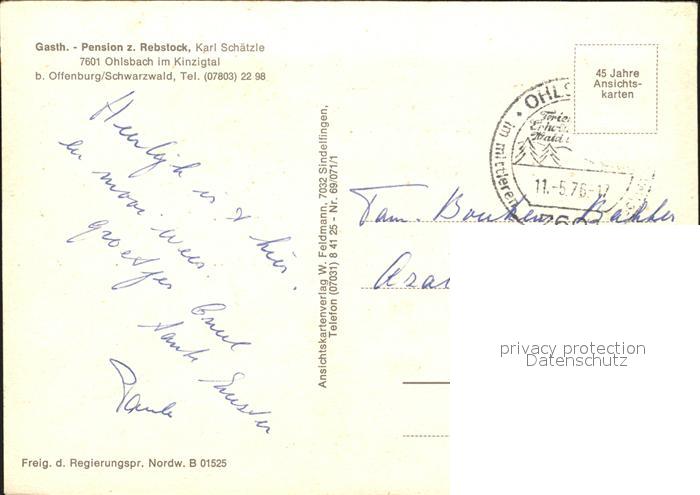 Gasth. - Pension z. Rebstock, Karl Schätzle
7601 Ohlsbach im Kinzigtal
b. Offenburg/Schwarzwald, Tel. (07803) 22 98
Heerlijk is 't hier.
en mooi weer.
groetjes
tante
Tante
Freig. d. Regierungspr. Nordw. B 01525
Ansichtskartenverlag W. Feldmann, 7032 Sindelfingen,
Telefon (07031) 8 41 25 - Nr. 69/071/1
45 Jahre
Ansichts-
karten
OHLS
Ferien
Erho
Wald
im mittleren
11.-5.76-17
Fam. Bakker
privacy protection
Datenschutz